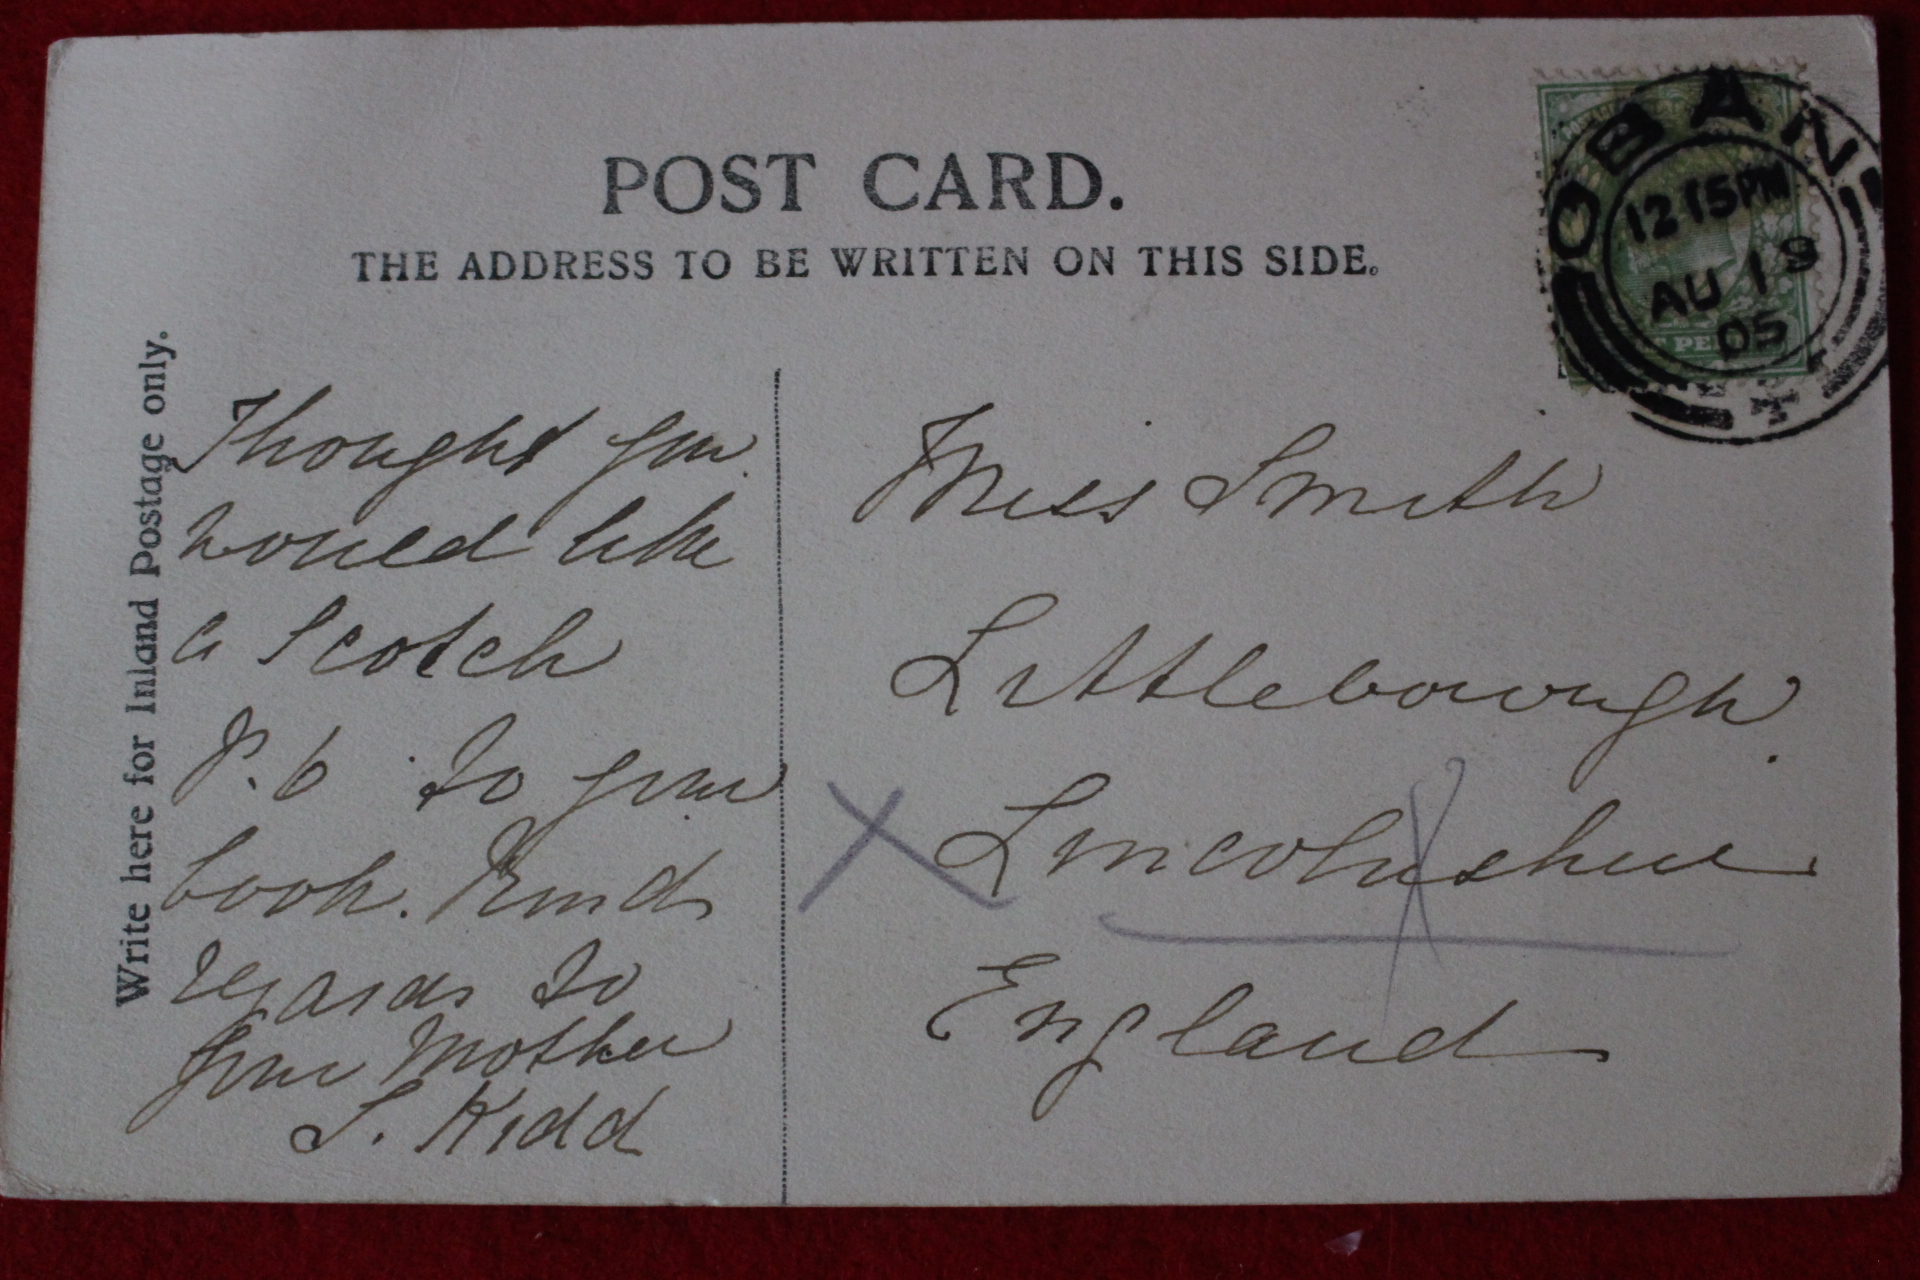 POST CARD.
THE ADDRESS TO BE WRITTEN ON THIS SIDE.
OBAN
12 15PM
AU 19
05
Write here for Inland Postage only.
Thought you
would like
a Scotch
P. C to your
book. Kind
regards to
your Mother
S. Kidd
Miss Smith
Littleborough
Lincolnshire
England